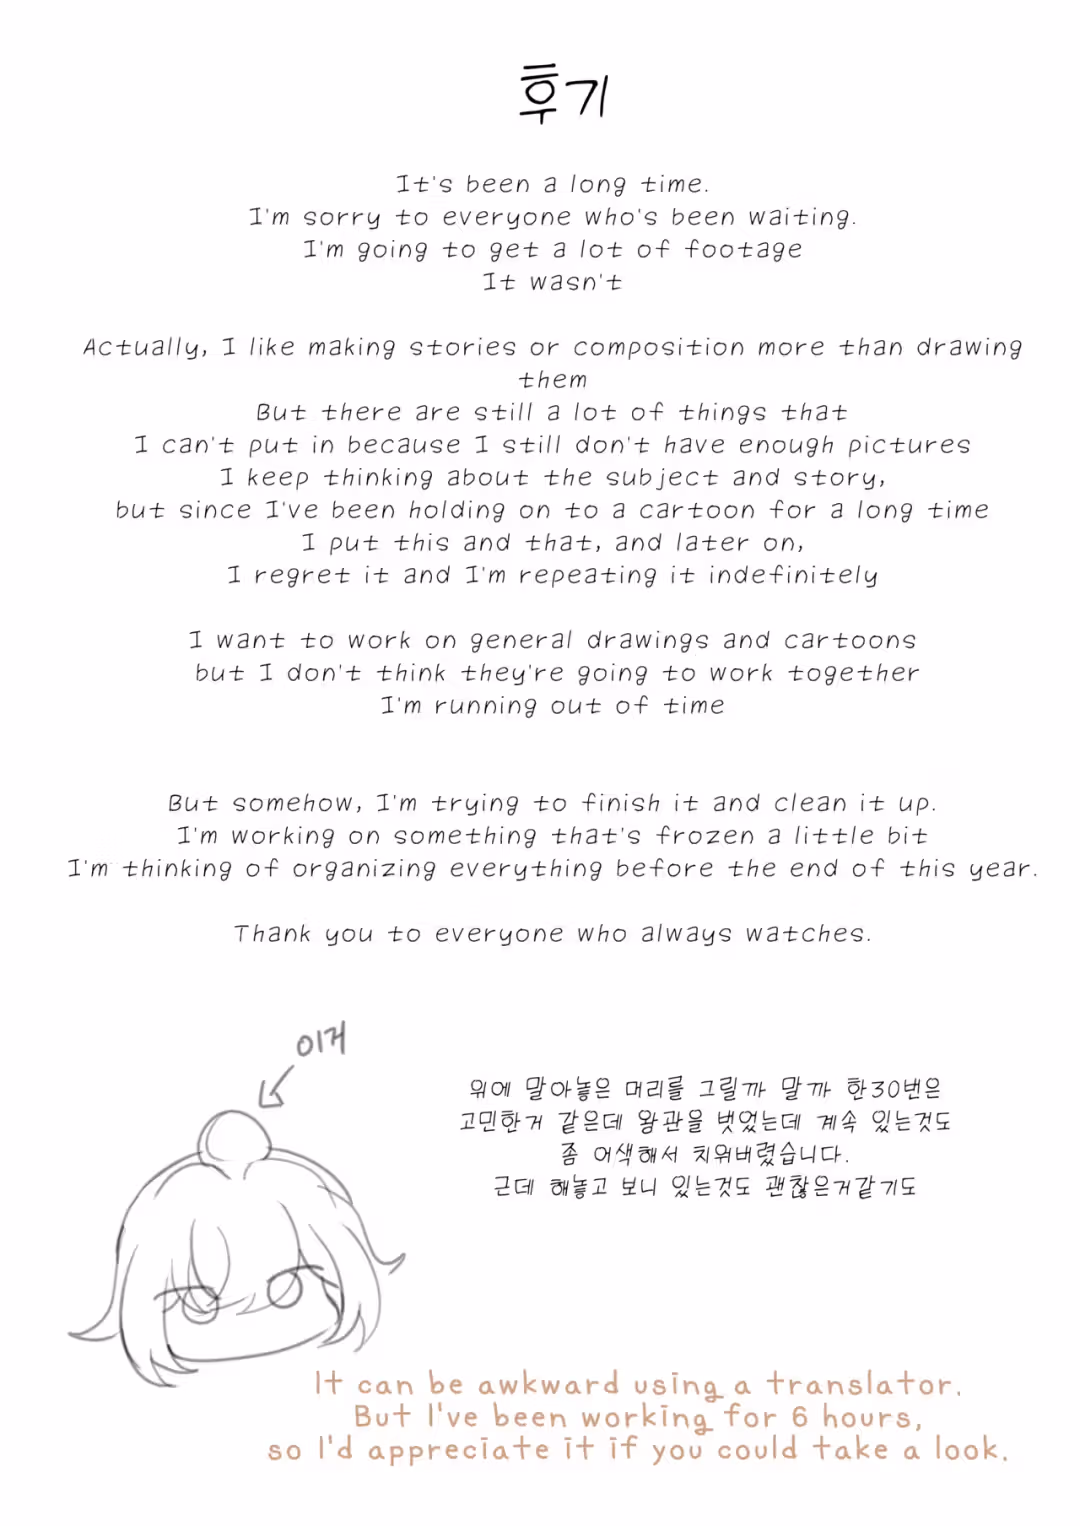 후기
It's been a long time.
I'm sorry to everyone who's been waiting.
I'm going to get a lot of footage
It wasn't
Actually, I like making stories or composition more than drawing
them
But there are still a lot of things that
I can't put in because I still don't have enough pictures
I keep thinking about the subject and story,
but since I've been holding on to a cartoon for a long time
I put this and that, and later on,
I regret it and I'm repeating it indefinitely
I want to work on general drawings and cartoons
but I don't think they're going to work together
I'm running out of time
But somehow, I'm trying to finish it and clean it up.
I'm working on something that's frozen a little bit
I'm thinking of organizing everything before the end of this year.
Thank you to everyone who always watches.
이거
위에 말아놓은 머리를 그릴까 말까 한30번은
고민한거 같은데 왕관을 벗었는데 계속 있는것도
좀 어색해서 치워버렸습니다.
근데 해놓고 보니 있는것도 괜찮은거같기도
It can be awkward using a translator.
But I've been working for 6 hours,
so I'd appreciate it if you could take a look.